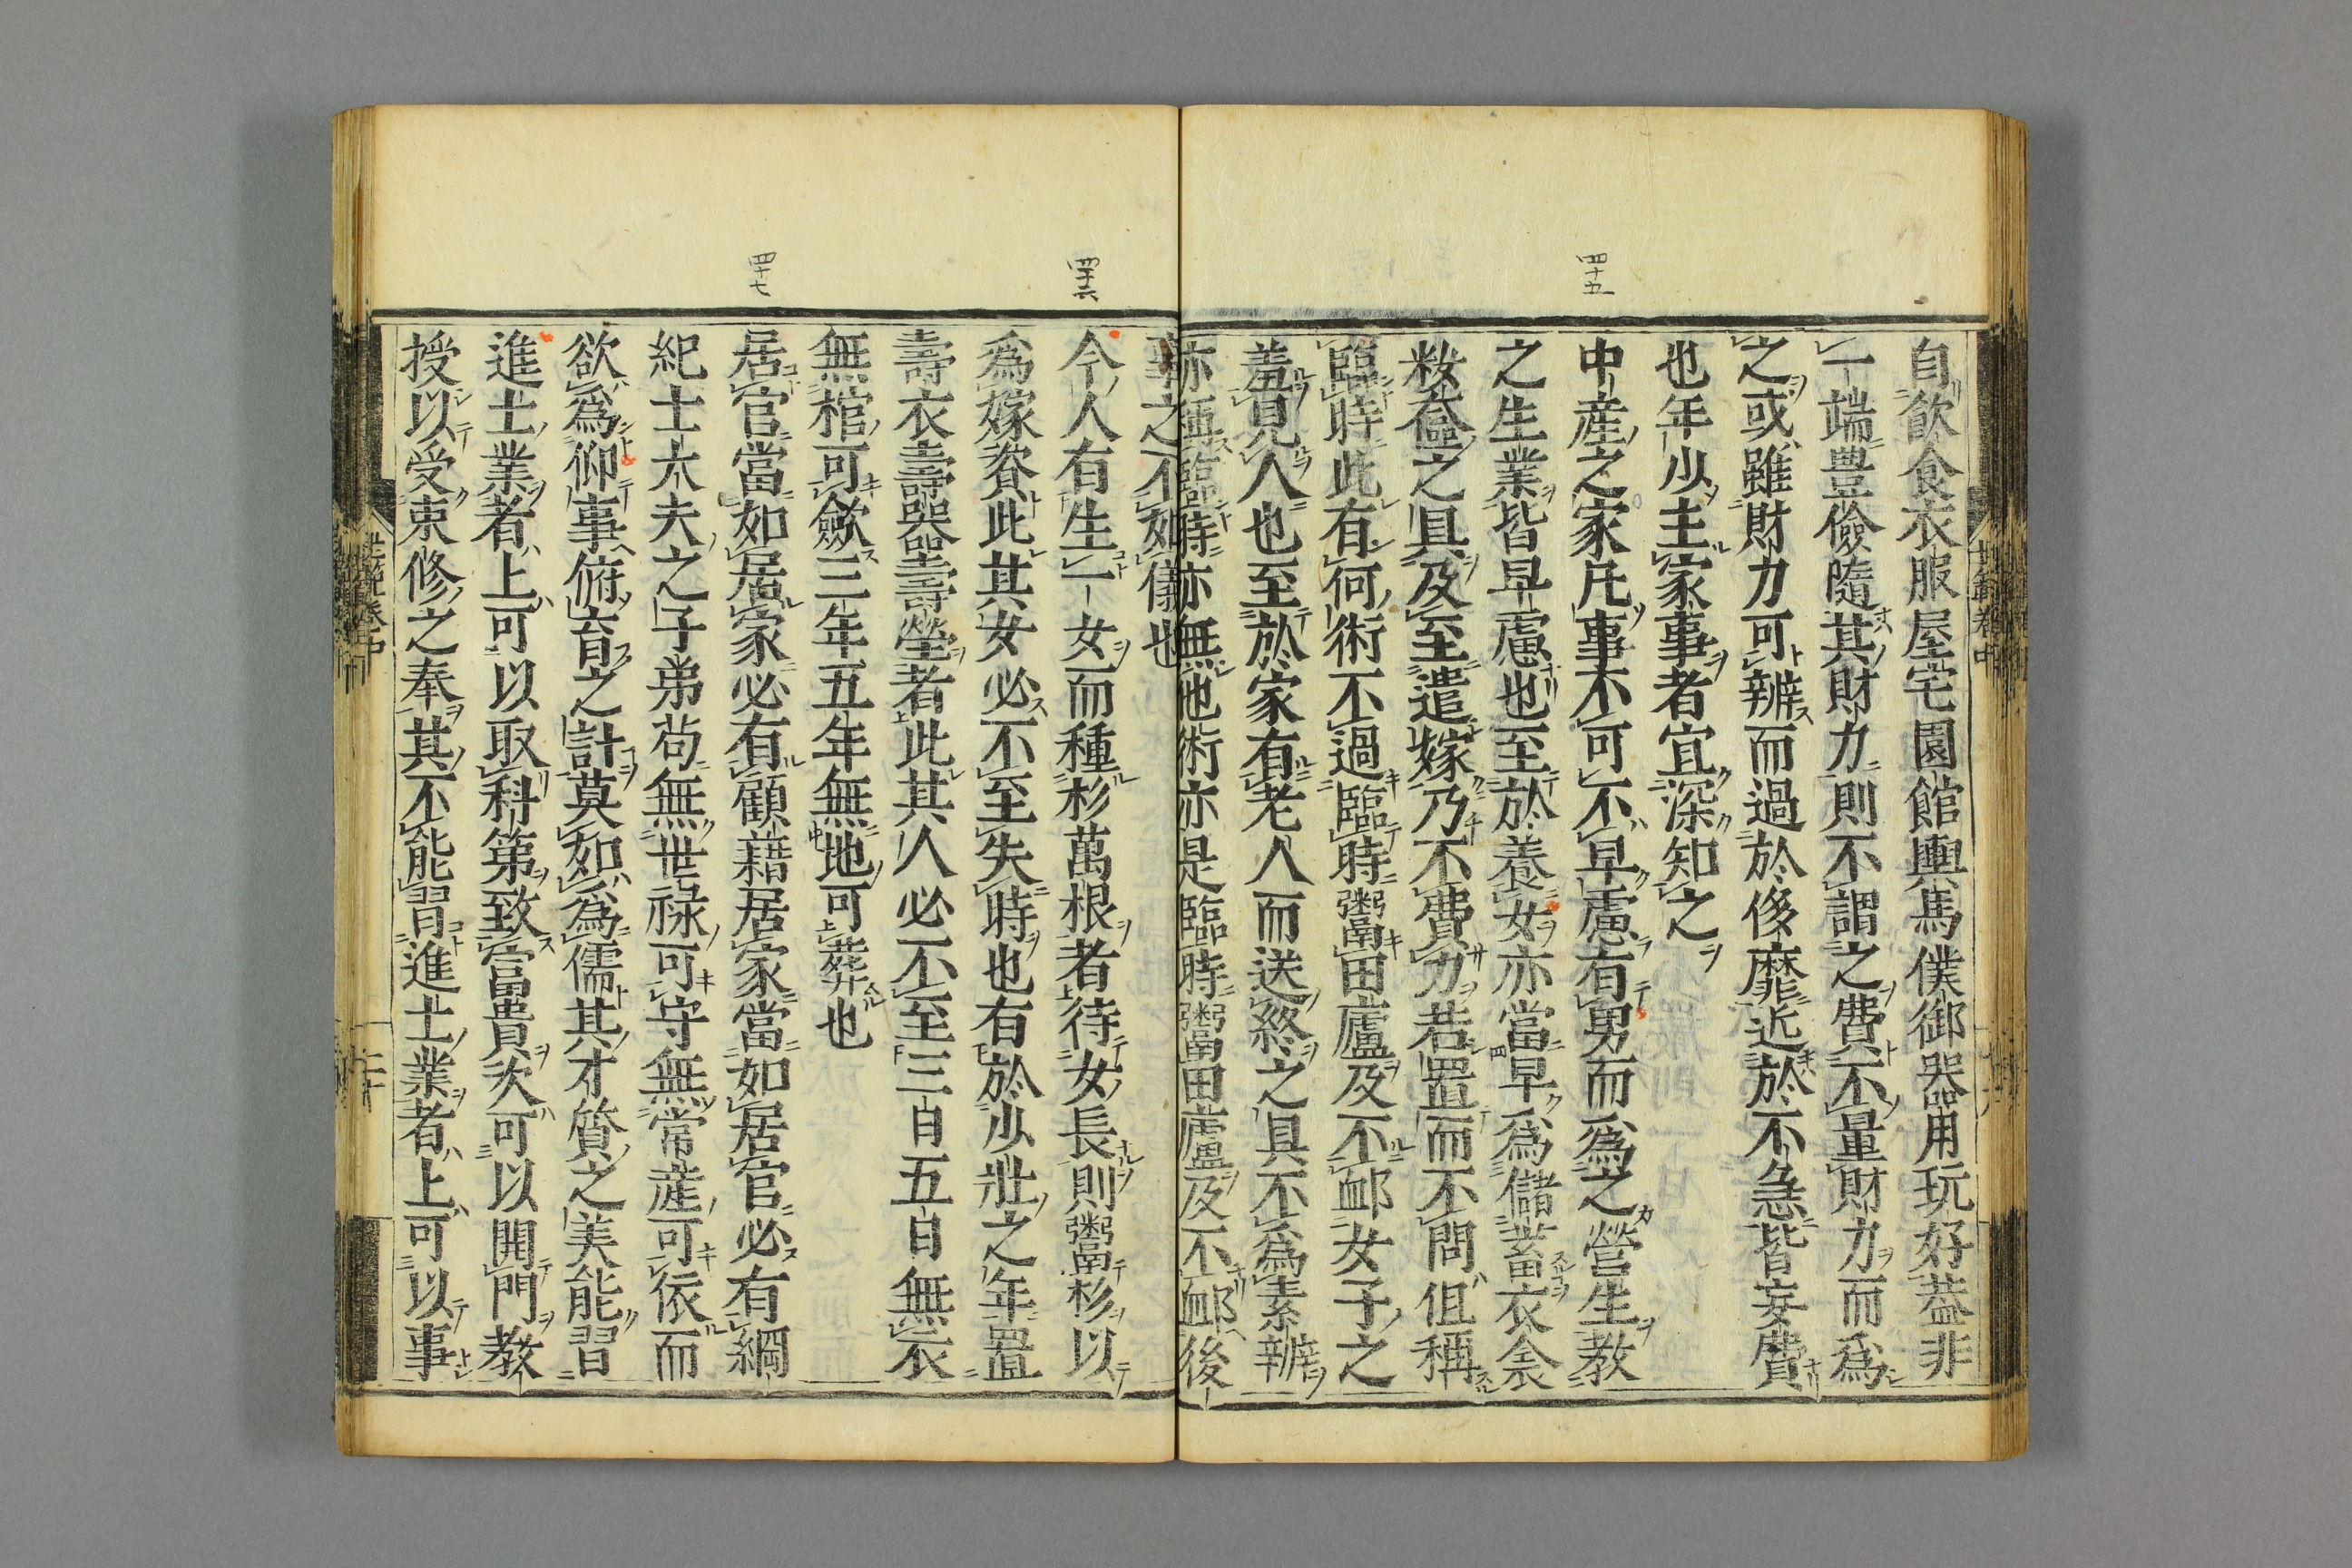 四十五
自飲食衣服屋宅園館輿馬僕御器用玩好蓋非
一端豊儉隨其財力則不謂之費不量財力而爲
之或雖財力可辨而過於侈靡近於不急皆妄費
也年少主家事者宜深知之
中産之家凡事不可不早慮有男而爲之營生教
之生業皆早慮也至於養女亦當早爲儲蓄衣衾
粧奩之具及至遣嫁乃不費力若置而不問但稱
臨時此有何術不過臨時鬻田廬及不䘏女子之
羞見人也至於家有老人而送終之具不爲素辨
亦稱臨時亦無他術亦是臨時鬻田廬及不䘏後
世範卷中
四十六
四十七
事之不如儀也
今人有生一女而種杉萬根者待女長則鬻杉以
爲嫁資此其女必不至失時也有於少壯之年置
壽衣壽器壽塋者此其人必不至三日五日無衣
無棺可歛三年五年無地可葬也
居官當如居家必有顧藉居家當如居官必有綱
紀士大夫之子弟苟無世祿可守無常産可依而
欲爲仰事俯育之計莫如爲儒其才質之美能習
進士業者上可以取科第致富貴次可以開門教
授以受束修之奉其不能習進士業者上可以事
世範卷中
二十